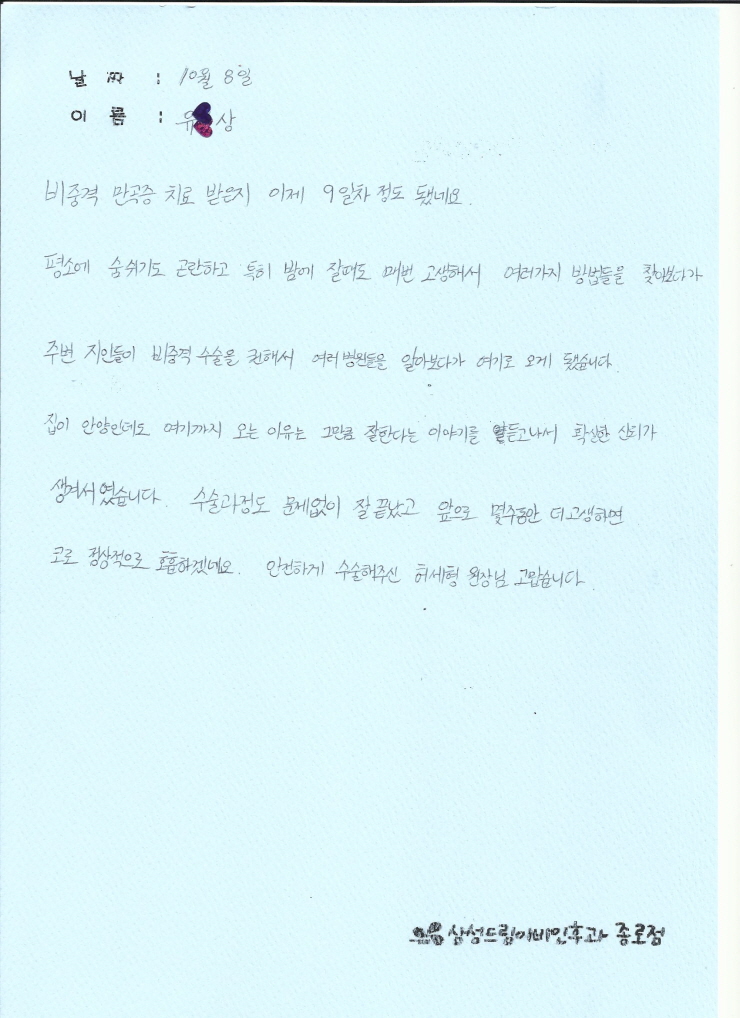 날 짜 : 10월 8일
이 름 : 유 상
비중격 만곡증 치료 받은지 이제 9일차 정도 됐네요.
평소에 숨쉬기도 곤란하고 특히 밤에 잘때도 매번 고생해서 여러가지 방법들을 찾아보다가
주변 지인들이 비중격 수술을 권해서 여러 병원들을 알아보다가 여기로 오게 됐습니다.
집이 안양인데도 여기까지 오는 이유는 그만큼 잘한다는 이야기를 듣고나서 확실한 신뢰가
생겨서 였습니다. 수술과정도 문제없이 잘 끝났고 앞으로 몇주동안 더 고생하면
코로 정상적으로 호흡하겠네요. 안전하게 수술해주신 허세형 원장님 고맙습니다.
삼성드림이비인후과 종로점